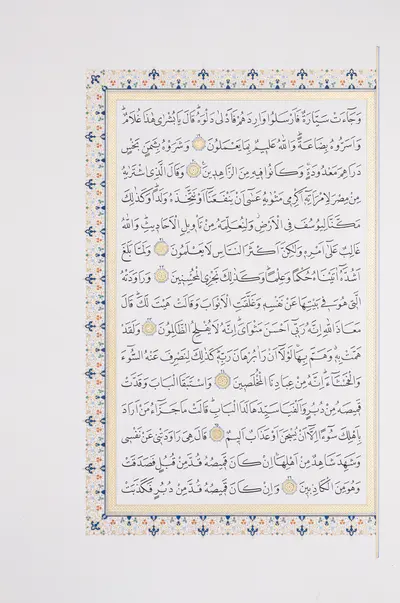 وَجَٓاءَتْ سَيَّارَةٌ فَاَرْسَلُوا وَارِدَهُمْ فَاَدْلٰى دَلْوَهُ قَالَ يَا بُشْرٰى هٰذَا غُلَامٌ
وَاَسَرُّوهُ بِضَاعَةً وَاللّٰهُ عَلٖيمٌ بِمَا يَعْمَلُونَ وَشَرَوْهُ بِثَمَنٍ بَخْسٍ
دَرَاهِمَ مَعْدُودَةٍ وَكَانُوا فٖيهِ مِنَ الزَّاهِدٖينَ وَقَالَ الَّذِي اشْتَرٰيهُ
مِنْ مِصْرَ لِامْرَاَتِهٖٓ اَكْرِمٖي مَثْوٰيهُ عَسٰٓى اَنْ يَنْفَعَنَٓا اَوْ نَتَّخِذَهُ وَلَدًا وَكَذٰلِكَ
مَكَّنَّا لِيُوسُفَ فِي الْاَرْضِ وَلِنُعَلِّمَهُ مِنْ تَأْوٖيلِ الْاَحَادٖيثِ وَاللّٰهُ
غَالِبٌ عَلٰٓى اَمْرِهٖ وَلٰكِنَّ اَكْثَرَ النَّاسِ لَا يَعْلَمُونَ وَلَمَّا بَلَغَ
اَشُدَّهُٓ اٰتَيْنَاهُ حُكْمًا وَعِلْمًا وَكَذٰلِكَ نَجْزِي الْمُحْسِنٖينَ وَرَاوَدَتْهُ
الَّتٖي هُوَ فٖي بَيْتِهَا عَنْ نَفْسِهٖ وَغَلَّقَتِ الْاَبْوَابَ وَقَالَتْ هَيْتَ لَكَ قَالَ
مَعَاذَ اللّٰهِ اِنَّهُ رَبّٖٓي اَحْسَنَ مَثْوَايَ اِنَّهُ لَا يُفْلِحُ الظَّالِمُونَ وَلَقَدْ
هَمَّتْ بِهٖ وَهَمَّ بِهَا لَوْلَٓا اَنْ رَاٰ بُرْهَانَ رَبِّهٖ كَذٰلِكَ لِنَصْرِفَ عَنْهُ السُّٓوءَ
وَالْفَحْشَٓاءَ اِنَّهُ مِنْ عِبَادِنَا الْمُخْلَصٖينَ وَاسْتَبَقَا الْبَابَ وَقَدَّتْ
قَمٖيصَهُ مِنْ دُبُرٍ وَاَلْفَيَا سَيِّدَهَا لَدَا الْبَابِ قَالَتْ مَا جَزَٓاءُ مَنْ اَرَادَ
بِاَهْلِكَ سُٓوءًا اِلَّٓا اَنْ يُسْجَنَ اَوْ عَذَابٌ اَلٖيمٌ قَالَ هِيَ رَاوَدَتْنٖي عَنْ نَفْسٖي
وَشَهِدَ شَاهِدٌ مِنْ اَهْلِهَا اِنْ كَانَ قَمٖيصُهُ قُدَّ مِنْ قُبُلٍ فَصَدَقَتْ
وَهُوَ مِنَ الْكَاذِبٖينَ وَاِنْ كَانَ قَمٖيصُهُ قُدَّ مِنْ دُبُرٍ فَكَذَبَتْ